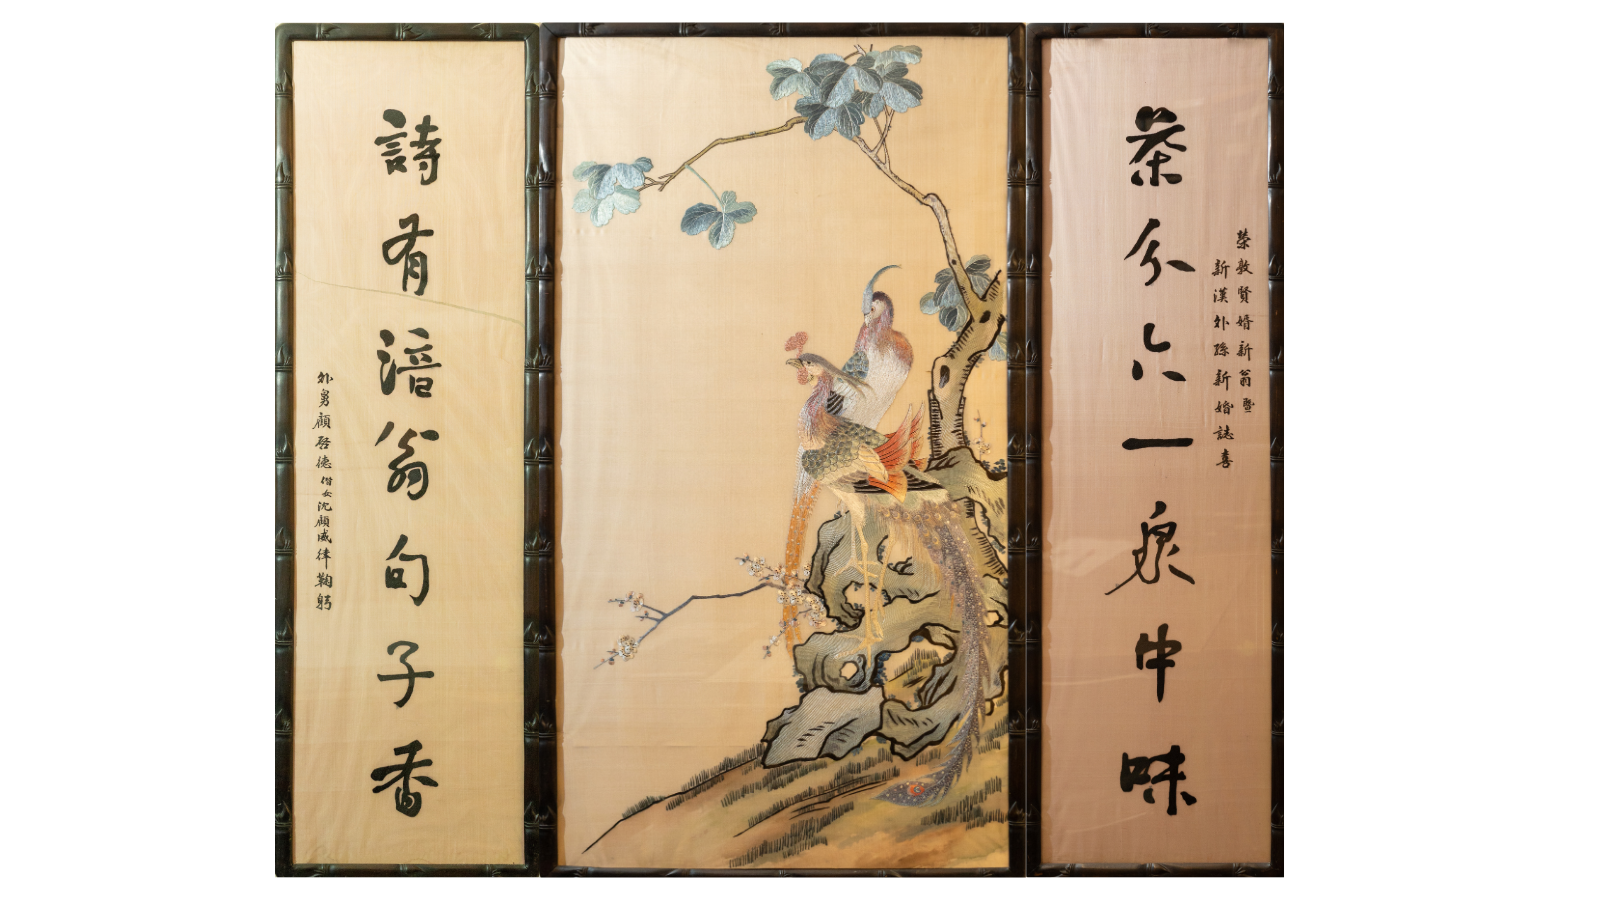 榮敦賢婿新翁暨
新漢外孫新婚誌喜
茶分六一泉中味
詩有涪翁句子香
外舅顧啓德偕女沈顧威律鞠躬